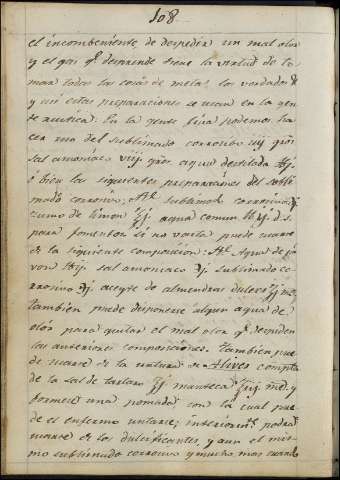 108
el incombeniente, de despedir un mal olor
y el gas q.e desprende tiene la virtud de to-
mar todas las cosas de metal los verdados
y asi estas preparaciones se usan en la gen-
te rustica. En la gente fina podemos ha-
cer uso del sublimado corrosibo iiij gros
sal amoniaco viij gros. agua destilada
ó bien las siguientes preparaciones del subli-
mado corrosivo; sublimado corrosivo
zumo de limon agua comun d. s.
para fomentos si no vasta puede usarse
de la siguiente composicion. Agua de ja-
von sal amoniaco sublimado co-
rrosivo aceyte de almendras dulces
tambien puede disponerse algun agua de
olór para quitar el mal olor q.e despiden
las anteriores composiciones. tambien pue-
de usarse de la untura de Alives compta
de la sal de tartaro manteca y
formese una pomada con la cual pue-
de el enfermo untarse; interiorm.te podra
usarse de los dulcificantes y aun el mis-
mo sublimado corrosivo y mucho mas cuando